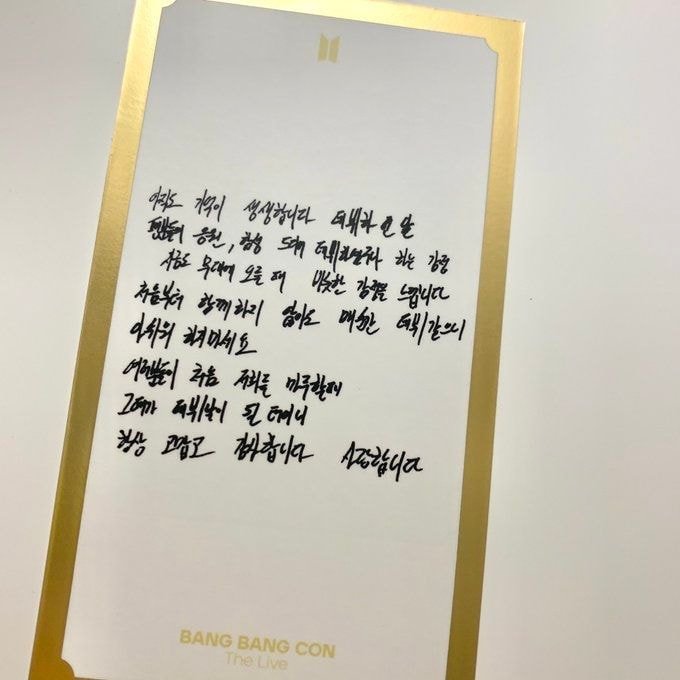 아직도 기억이 생생합니다 데뷔하던 날
팬분들의 응원, 함성 드디어 데뷔하는구나 하는 감정
지금도 무대에 오를 때 비슷한 감정을 느낍니다
처음부터 함께하지 않아도 매순간 데뷔 같으니
아쉬워 하지마세요
여러분들이 처음 저희를 마주할때
그때가 데뷔날이 될 테이니
항상 고맙고 감사합니다 사랑합니다
BANG BANG CON
The Live